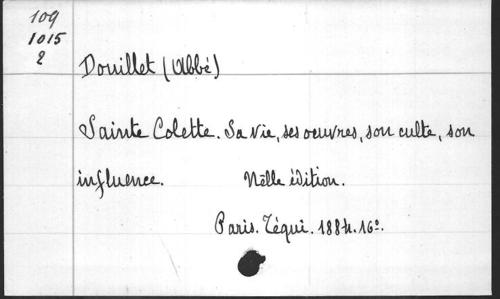 109
1015
2
Douillet (Abbé)
Sainte Colette. Sa vie, ses oeuvres, son culte, son
influence. Nelle édition.
Paris. Téqui. 1884. 16º.